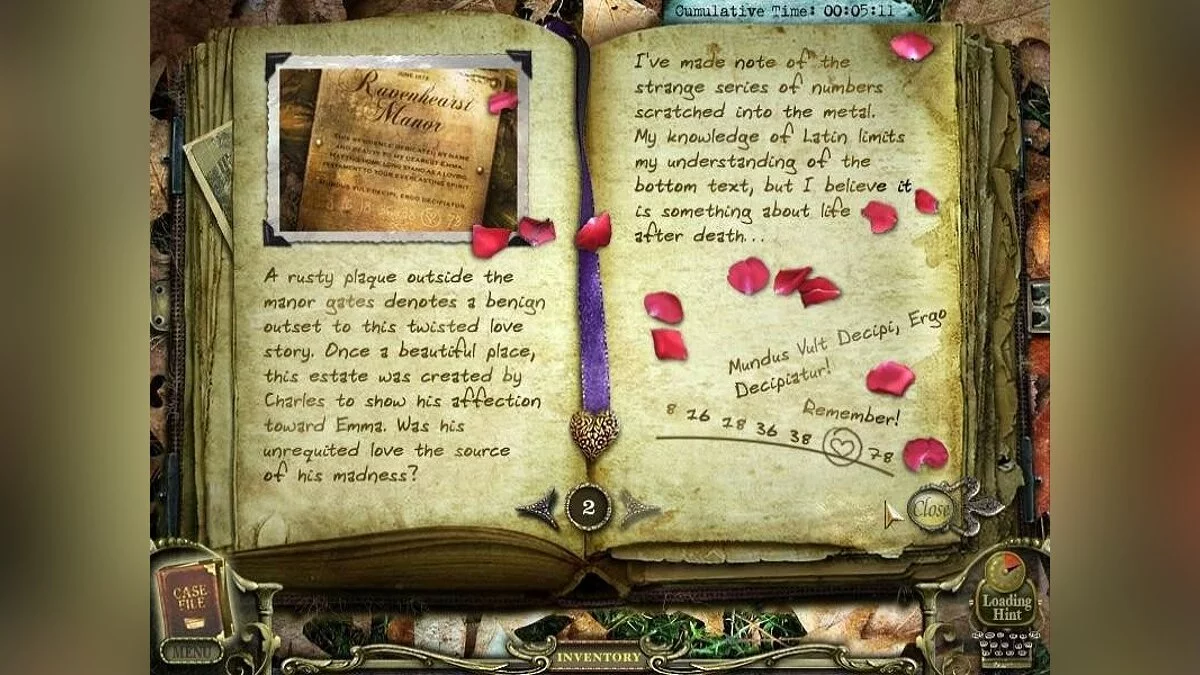 Cumulative Time: 00:05:11
JUNE 1878
Ravenhearst
Manor
A rusty plaque outside the
manor gates denotes a benign
outset to this twisted love
story. Once a beautiful place,
this estate was created by
Charles to show his affection
toward Emma. Was his
unrequited love the source
of his madness?
I've made note of the
strange series of numbers
scratched into the metal.
My knowledge of Latin limits
my understanding of the
bottom text, but I believe it
is something about life
after death...
Mundus Vult Decipi, Ergo
Decipiatur!
Remember!
8 16 28 36 38 78
2
Close
CASE
FILE
MENU
INVENTORY
Loading
Hint